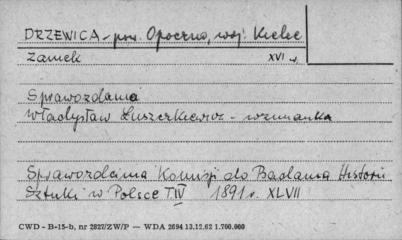 DRZEWICA - pow. Opoczno, woj. Kielce
Zamek XVI w.
Sprawozdania
Władysław Łuszczkiewicz - wzmianka
Sprawozdania Komisji do Badania Historii
Sztuki w Polsce T. IV 1891 r. XLVII
CWD - B-15-b, nr 2827/ZW/P — WDA 2694 13.12.62 1.700.000